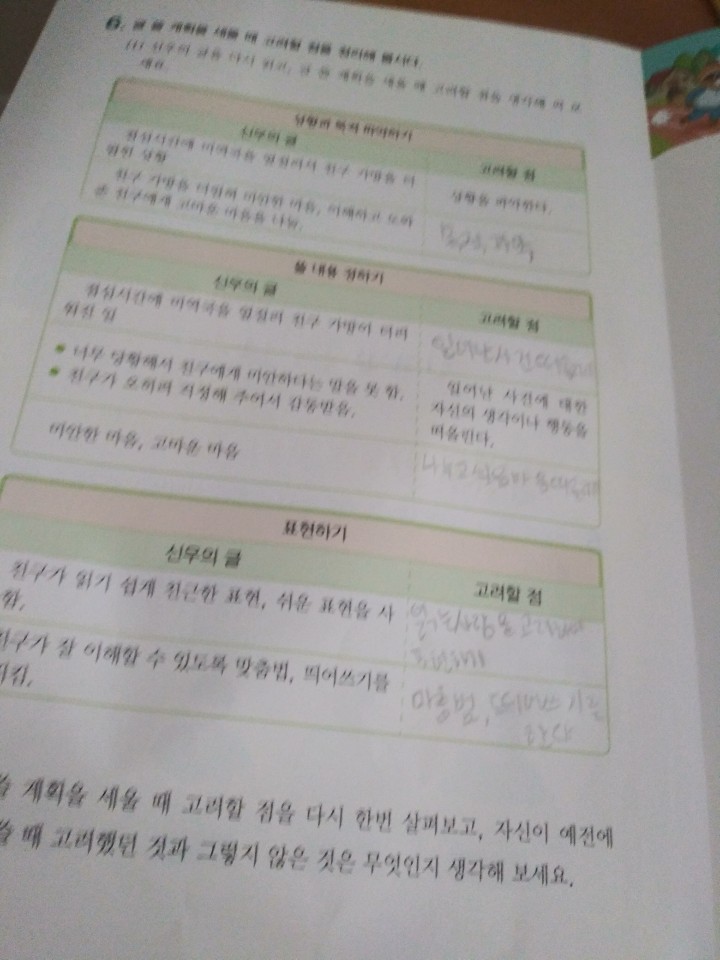 6. 글 쓸 계획을 세울 때 고려할 점을 정리해 봅시다.
(1) 신우의 글을 다시 읽고, 글 쓸 계획을 세울 때 고려할 점을 생각해 써 보
세요.
상황과 목적 파악하기
신우의 글
고려할 점
점심시간에 미역국을 엎질러서 친구 가방을 더
럽힌 상황
상황을 파악한다.
친구 가방을 더럽혀 미안한 마음, 이해하고 도와
준 친구에게 고마운 마음을 나눔.
쓸 내용 정하기
신우의 글
고려할 점
점심시간에 미역국을 엎질러 친구 가방이 더러
워진 일
일어난 사건
너무 당황해서 친구에게 미안하다는 말을 못 함.
친구가 오히려 걱정해 주어서 감동받음.
일어난 사건에 대한
자신의 생각이나 행동을
떠올린다.
미안한 마음, 고마운 마음
표현하기
신우의 글
고려할 점
친구가 읽기 쉽게 친근한 표현, 쉬운 표현을 사
함.
읽는 사람을
친구가 잘 이해할 수 있도록 맞춤법, 띄어쓰기를
지킴.
띄어쓰기를
쓸 계획을 세울 때 고려할 점을 다시 한번 살펴보고, 자신이 예전에
쓸 때 고려했던 것과 그렇지 않은 것은 무엇인지 생각해 보세요.